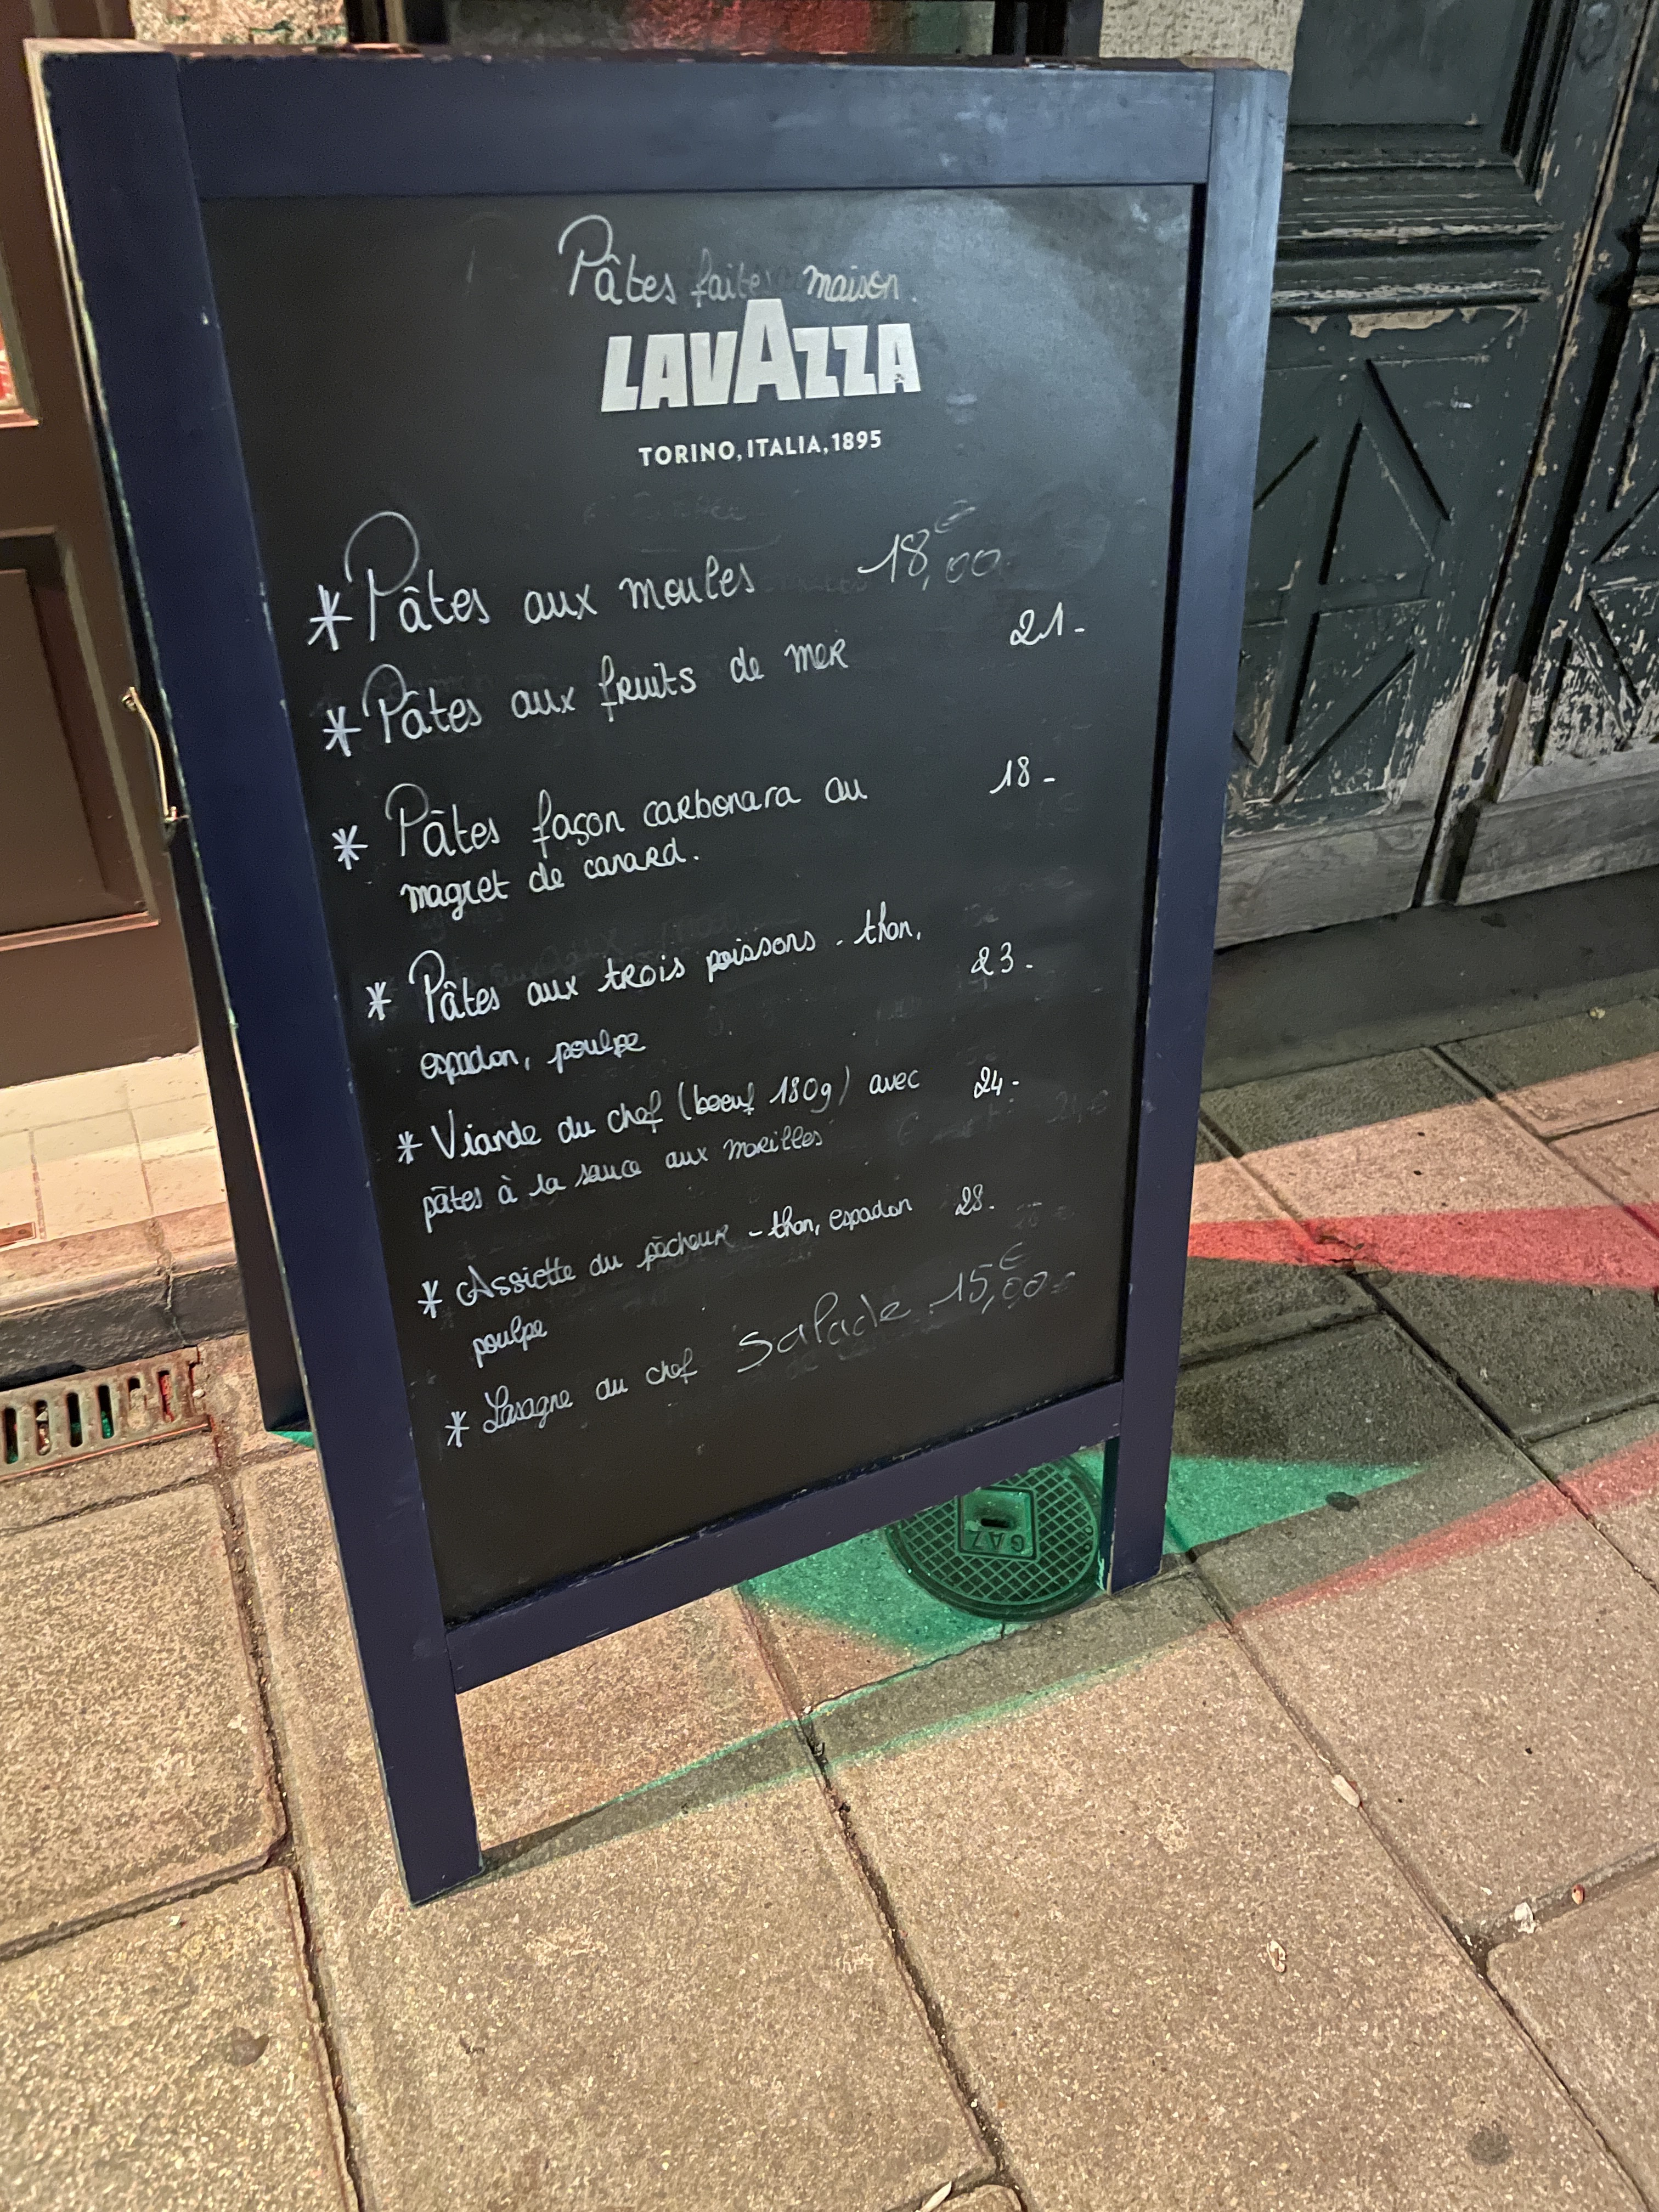 Pâtes faites maison
LAVAZZA
TORINO, ITALIA, 1895
* Pâtes aux moules 18,00€
* Pâtes aux fruits de mer 21-
* Pâtes façon carbonara au 18-
magret de canard.
* Pâtes aux trois poissons - thon,
espadon, poulpe 23-
* Viande du chef (boeuf 180g) avec 24-
pâtes à la sauce aux morilles
* Assiette du pêcheur - thon, espadon 28-
poulpe
* Lasagne du chef Salade 15,00€
GAZ